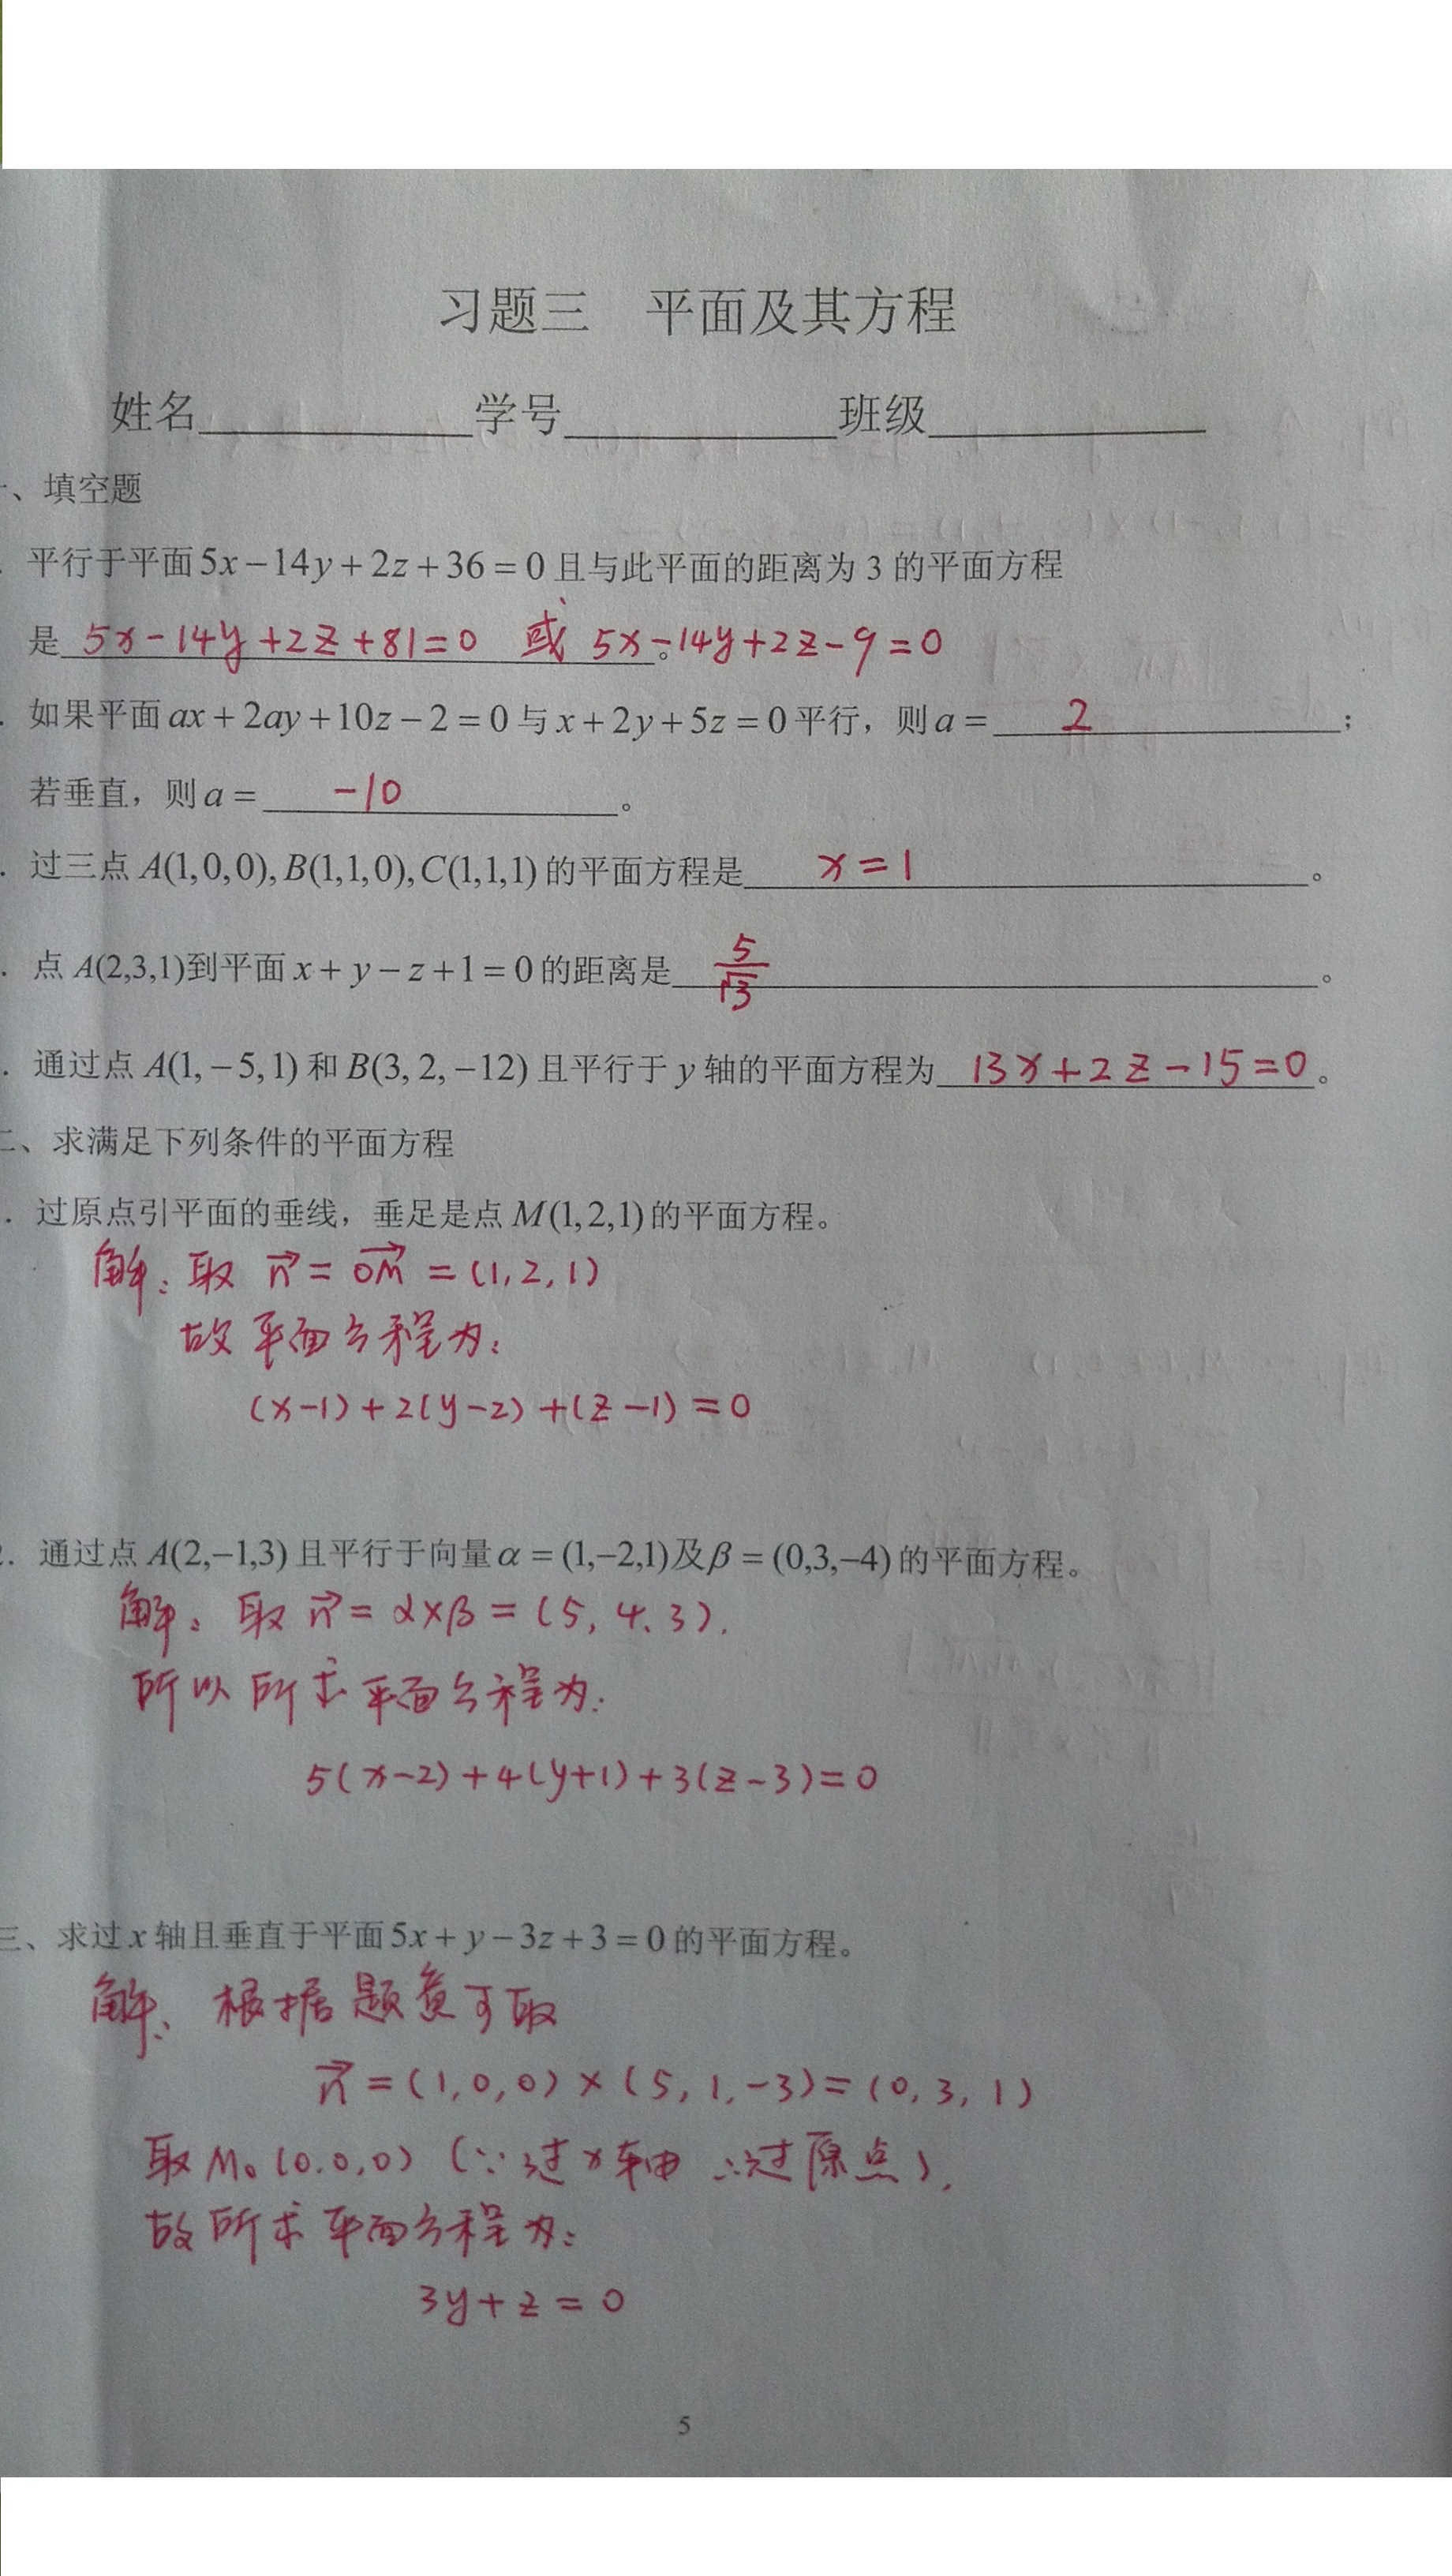 习题三 平面及其方程
姓名____________学号____________班级____________
一、填空题
. 平行于平面5x−14y+2z+36=0且与此平面的距离为3的平面方程
是 5x−14y+2z+81=0 或 5x−14y+2z−9=0 。
. 如果平面ax+2ay+10z−2=0与x+2y+5z=0平行，则a= 2 ；
若垂直，则a= −10 。
. 过三点A(1,0,0),B(1,1,0),C(1,1,1)的平面方程是 x=1 。
. 点A(2,3,1)到平面x+y−z+1=0的距离是 5/√3 。
. 通过点A(1,−5,1)和B(3,2,−12)且平行于y轴的平面方程为 13x+2z−15=0 。
二、求满足下列条件的平面方程
. 过原点引平面的垂线，垂足是点M(1,2,1)的平面方程。
解：取 n⃗ = OM⃗ = (1,2,1)
故平面方程为：
(x−1)+2(y−2)+(z−1)=0
2. 通过点A(2,−1,3)且平行于向量α=(1,−2,1)及β=(0,3,−4)的平面方程。
解：取 n⃗ = α×β = (5,4,3).
所以所求平面方程为：
5(x−2)+4(y+1)+3(z−3)=0
三、求过x轴且垂直于平面5x+y−3z+3=0的平面方程。
解：根据题意可取
n⃗ = (1,0,0)×(5,1,−3)=(0,3,1)
取M₀(0,0,0) (∵过x轴 ∴过原点),
故所求平面方程为：
3y+z=0
5